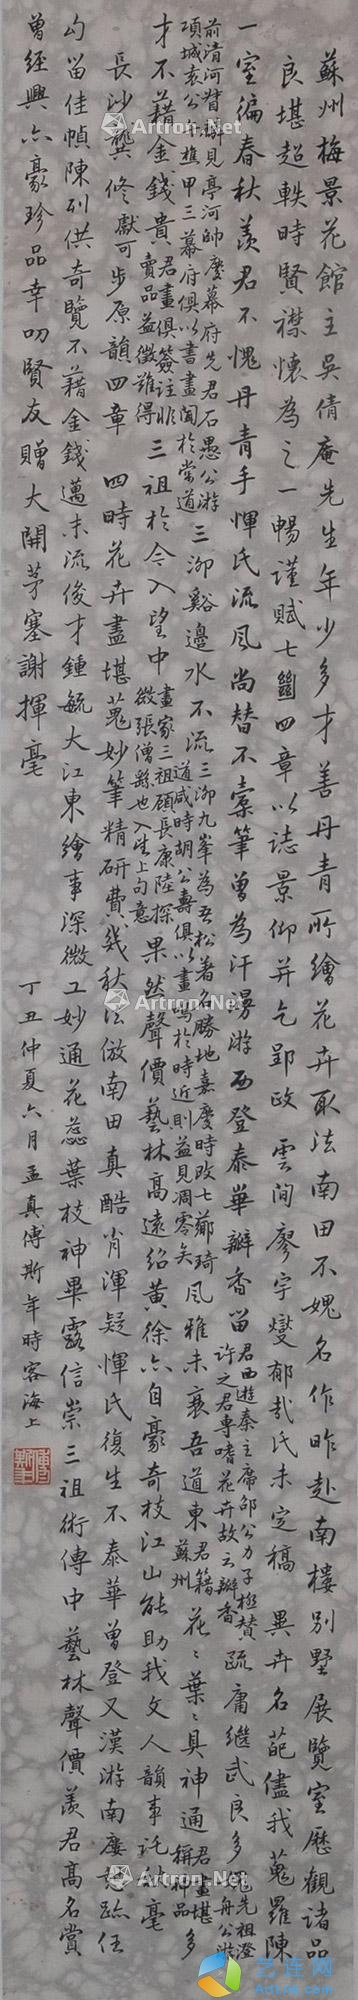 蘇州梅景花館主吳倩庵先生年少多才善丹青所繪花卉取法南田不媿名作昨赴南樓別墅展覽室歷觀諸品
良堪超軼時賢襟懷為之一暢謹賦七圖四章以誌景仰并乞郢政 雲間廖宇燮郁哉氏未定稿 異卉名葩儘我蒐羅陳
一室徧春秋羨君不愧丹青手惲氏流風尚替不 橐筆曾為汗漫游西登泰華辦香留 君西遊秦主席邵公力子極贊許之君專嗜花卉故云瓣香 疏庸繼武良多愧 先祖澄舟公游
前清河督麟見亭河帥慶幕府先君石愚公游項城袁公午樵甲三幕府俱以書畫聞於當道 三泖谿邊水不流 三泖九峯為吾松著名勝地嘉慶時改七薌琦道咸時胡公壽俱以畫鳴於時近則益見凋零矣 風雅未衰吾道東 君籍蘇州 花花葉葉具神通 君畫堪稱神品 多
才不藉金錢貴 君畫俱簽註非賣品益徵難得 三祖於今入望中 畫家三祖顧長康陸探微張僧繇也入生上句意 果然聲價藝林高遠紹黃徐亦自豪奇枝江山能助我文人韻事託秋毫
長沙龔修獻可步原韻四章 四時花卉盡堪蒐妙筆精研費幾秋法倣南田真酷肖渾疑惲氏復生不 泰華曾登又漢游南廔
勾留佳幀陳列供奇覽不藉金錢邁末流 俊才鍾毓大江東繪事深微工妙通花蕊葉枝神畢露信崇三祖術傳中 藝林聲價羨君高名賞
曾經興亦豪珍品幸叨賢友贈大開茅塞謝揮毫
丁丑仲夏六月孟真傅斯年時客海上
Artron.Net
艺连网
Artlianhua